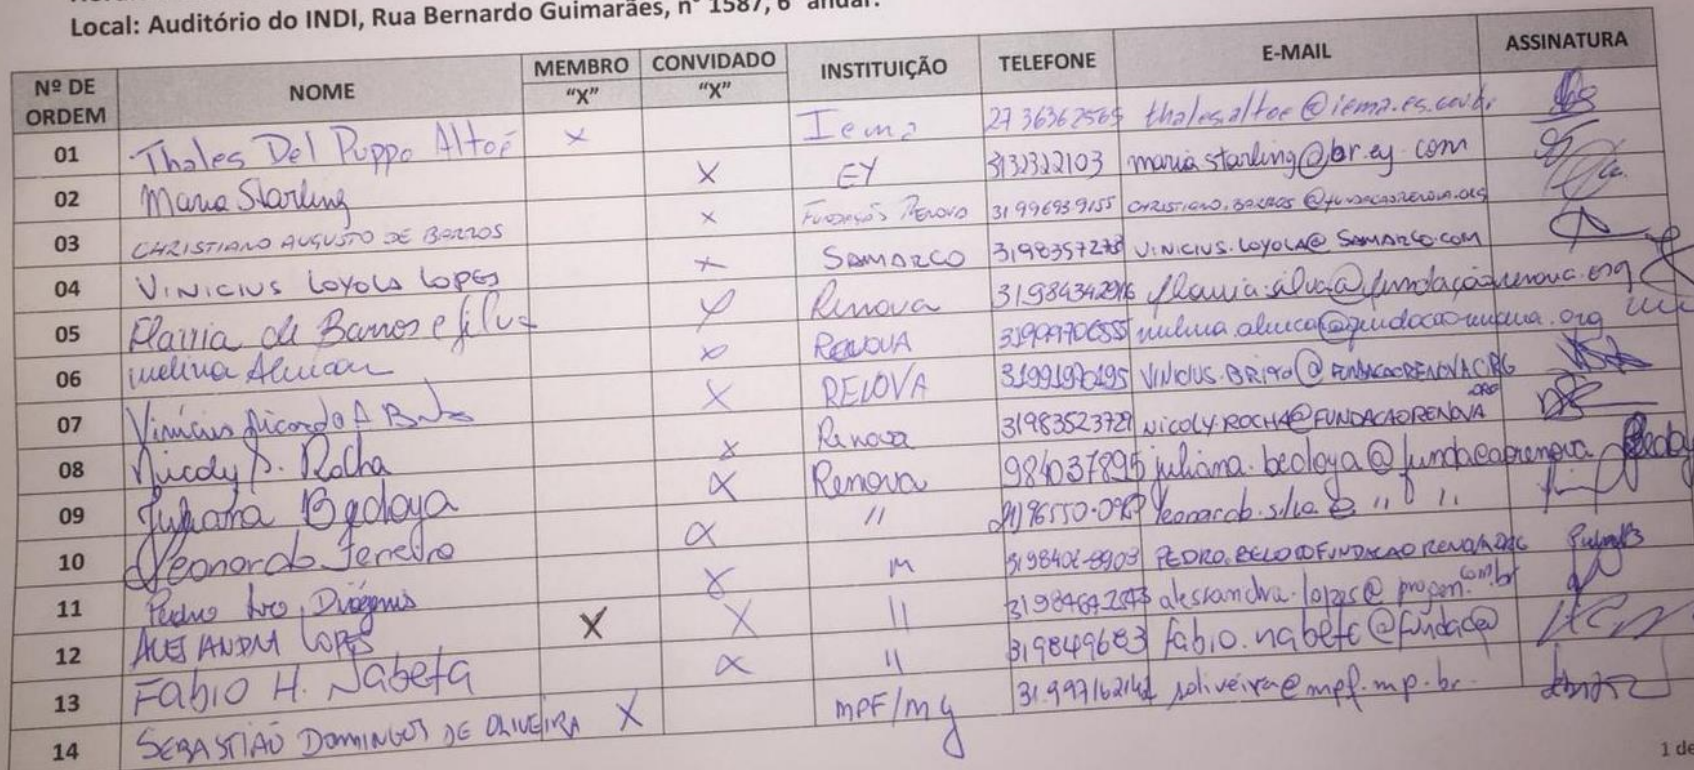 Local: Auditório do INDI, Rua Bernardo Guimarães, nº 1587, 6º andar.
Nº DE ORDEM NOME MEMBRO "X" CONVIDADO "X" INSTITUIÇÃO TELEFONE E-MAIL ASSINATURA
01 Thales Del Puppo Altoé X Iema 27 36362565 thales.altoe@iema.es.gov.br
02 Maria Starling X EY 3132322103 maria.starling@br.ey.com
03 CHRISTIANO AUGUSTO DE BARROS X FUNDAÇÃO RENOVA 31 996939155 CHRISTIANO.BARROS@FUNDACAORENOVA.ORG
04 VINICIUS LOYOLA LOPES X SAMARCO VINICIUS.LOYOLA@SAMARCO.COM
05 Flavia de Barros e Silva X Renova flavia.silva@fundaçãorenova.org
06 Melina Alencar X RENOVA
07 Vinícius Ricardo A X RENOVA 31991990195 VINICIUS.BRITO@FUNDACAORENOVA.ORG
08 Nicoly S. Rocha X Renova 31983523729 NICOLY.ROCHA@FUNDACAORENOVA.ORG
09 Juliana Bedoya X Renova 984037895 juliana.bedoya@fundacaorenova
10 Leonardo Ferreira X 11 leonardo.silva@ 11 11
11 Pedro Ivo Diógenes X 11 PEDRO.BELO@FUNDACAORENOVA.ORG
12 ALESSANDRA LOPES X X 11 alessandra.lopes@progen.com.br
13 Fabio H. Nabeta X 11 319849683 fabio.nabeta@fundação
14 SEBASTIÃO DOMINGOS DE OLIVEIRA X MPF/MG soliveira@mpf.mp.br
1 de